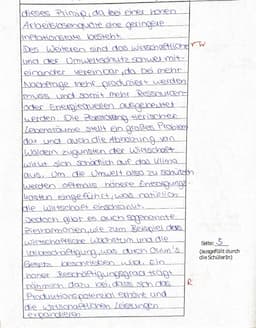 dieses Prinzip, da bei einer hohen
Arbeitslosenquote eine geringere
Inflationsrate besteht.
Des Weiteren sind das wirtschaftliche rw
und der Umweltschutz schwer mit-
einander vereinbar, da bei mehr
Nachfrage mehr produziert werden
muss und somit mehr Ressourcen
oder Energiequellen ausgebeutet
werden. Die Zerstörung tierischer
Lebensräume stellt ein großes Problem
dar und auch die Abholzung von
Wäldern zugunsten der Wirtschaft
wirkt sich schädlich auf das Klima
aus. Um die Umwelt also zu schützen
werden oftmals höhere Entsorgungs-
kosten eingeführt, was natürlich
die Wirtschaft einschränkt.
Jedoch gibt es auch sogenannte
Zielharmonien, wie zum Beispiel das
wirtschaftliche Wachstum und die
Vollbeschäftigung, was durch Okun's
Gesetz beschrieben wird. Ein
hoher Beschäftigungsgrad trägt
nämlich dazu bei, dass sich das R
Produktionspotenzial erhöht und
die wirtschaftlichen Leistungen
expandieren
Seite: 5
(ausgefüllt durch
die Schüler/in)